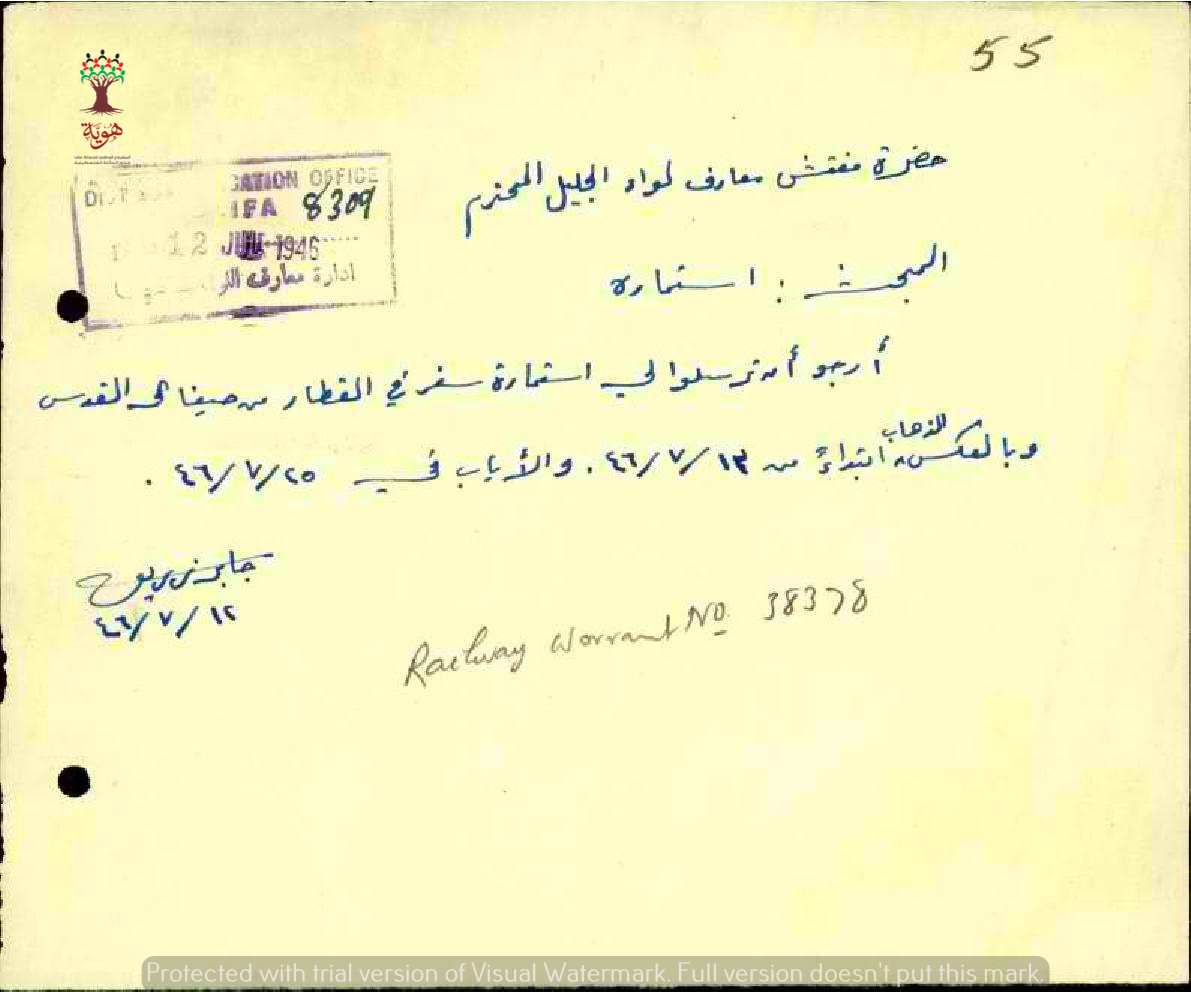 55
هوية
DIST EDUCATION OFFICE
HAIFA 8309
12 JUL 1946
ادارة معارف
حضرة مفتش معارف لواء الجليل المحترم
المبحث : استمارة
أرجو أن ترسلوا لي استمارة سفر في القطار من حيفا الى القدس
وبالعكس، للذهاب ابتداءً من ١٣/٧/٤٦. والأياب في ٢٥/٧/٤٦.
جابر
١٢/٧/٤٦
Railway Warrant No. 38378
Protected with trial version of Visual Watermark. Full version doesn't put this mark.